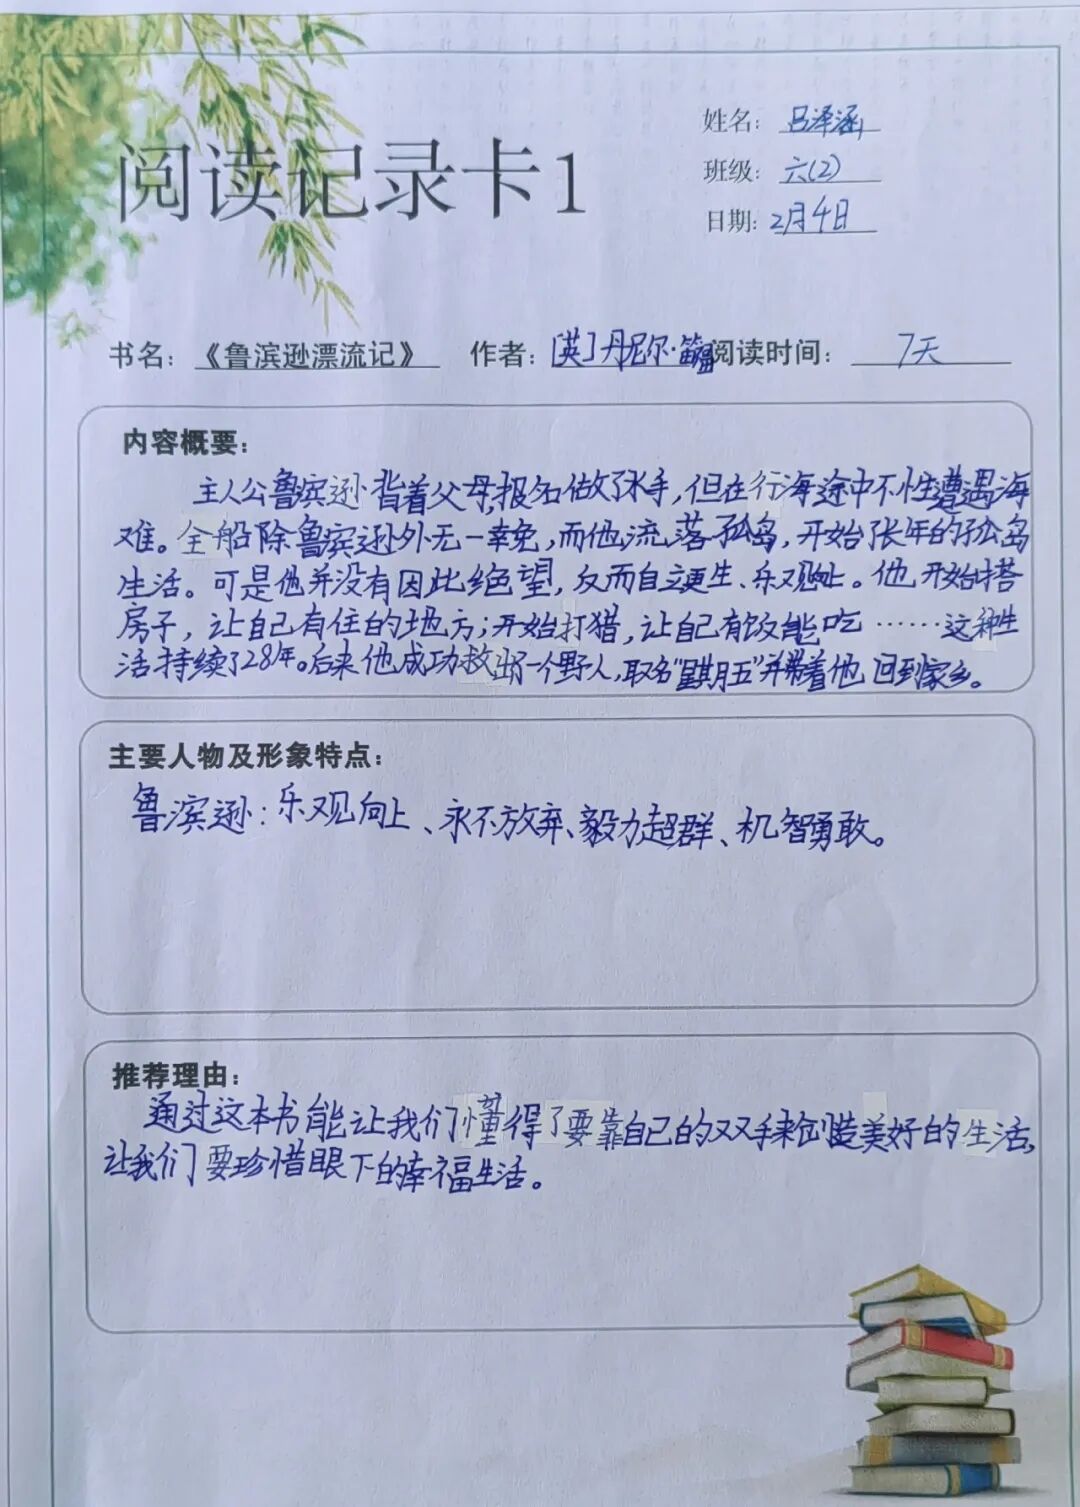 阅读记录卡1
姓名：吕泽涵
班级：六(2)
日期：2月4日
书名：《鲁滨逊漂流记》 作者：[英]丹尼尔·笛福 阅读时间：7天
内容概要：
主人公鲁滨逊背着父母,报名做了水手,但在行海途中不性遭遇海
难。全船除鲁滨逊外无一幸免,而他流落孤岛,开始长年的孤岛
生活。可是他并没有因此绝望,反而自立更生、乐观向上。他开始搭
房子,让自己有住的地方;开始打猎,让自己有饭能吃……这种生
活持续了28年。后来他成功救出了一个野人,取名“星期五”并带着他回到家乡。
主要人物及形象特点：
鲁滨逊:乐观向上、永不放弃、毅力超群、机智勇敢。
推荐理由：
通过这本书能让我们懂得了要靠自己的双手来创造美好的生活,
让我们要珍惜眼下的幸福生活。